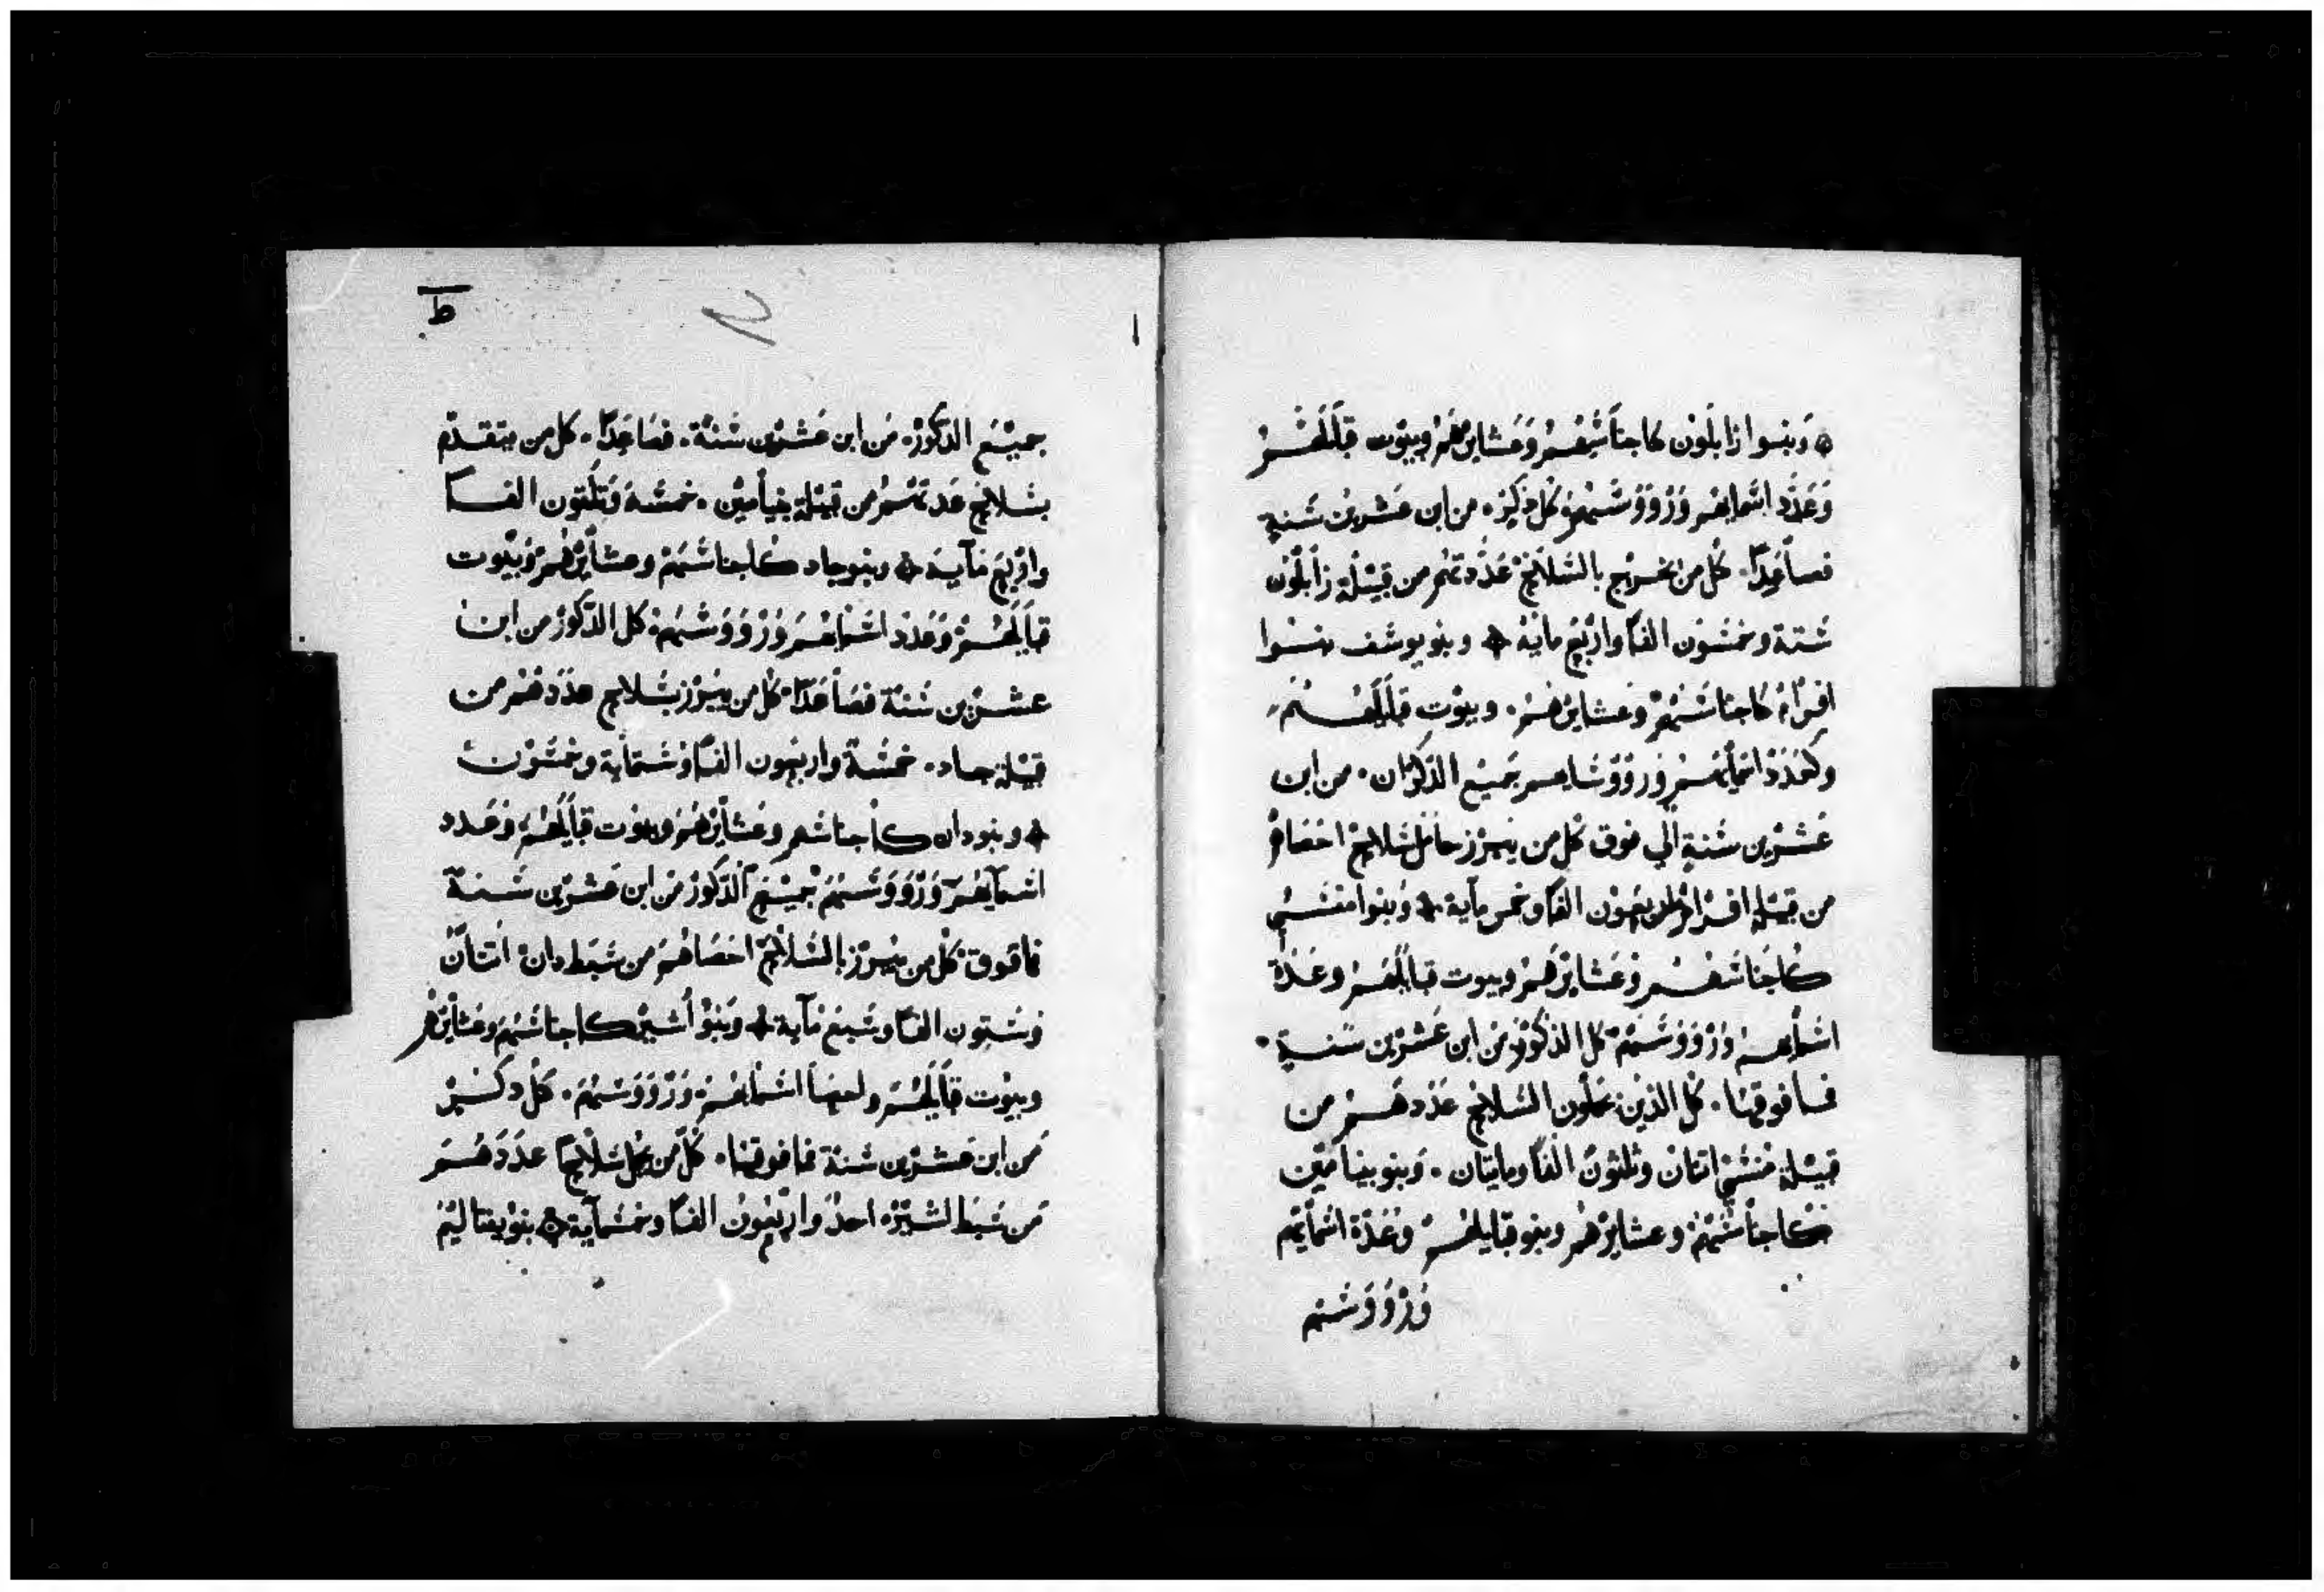 وبنوا زابلون كاجناسهم وعشايرهم وبيوت قبايلهم
وعدد اسمايهم ورووسهم كل ذكر. من ابن عشرين سنة
فصاعدا. كل من يخرج بالسلاح عددتهم من قبيلة زابلون
ستة وخمسون الفا واربع ماية وبنو يوسف بنوا
افرام كاجناسهم وعشايرهم. وبيوت قبايلهم
وكعدد اسمايهم ورووسايهم بجميع الذكران. من ابن
عشرين سنة الي فوق كل من يبرز حامل سلاح احصاو
من قبيلة افرام اربعون الفا وخمس ماية وبنوا منسي
كاجناسهم وعشايرهم وبيوت قبايلهم وعدة
اسمايهم ورووسهم كل الذكور من ابن عشرين سنة.
فما فوقها. كل الذين يحملون السلاح عددهم من
قبيلة منسي اتنان وتلتون الفا ومايتان. وبنو بنيامين
كاجناسهم وعشايرهم وبنو قبايلهم وعدة اسمايهم
ورووسهم
ط
جميع الذكور. من ابن عشرين سنة. فصاعدا. كل من يتقدم
بسلاح عدتهم من قبيلة بنيامين. خمسة وتلتون الفا
واربع ماية وبنو جاد كاجناسهم وعشايرهم وبيوت
قبايلهم وعدد اسمايهم ورووسهم. كل الذكور من ابن
عشرين سنة فصاعدا. كل من يبرز بسلاح عددهم من
قبيلة جاد. خمسة واربعون الفا وستماية وخمسون
وبنودان كاجناسهم وعشايرهم وبيوت قبايلهم وعدد
اسمايهم ورووسهم بجميع الذكور من ابن عشرين سنة
فما فوق. كل من يبرز بالسلاح احصاهم من سبط دان اتنان
وستون الفا وسبع ماية وبنو اشير كاجناسهم وعشايرهم
وبيوت قبايلهم اسمايهم ورووسهم. كل ذكر
من ابن عشرين سنة فما فوقها. كل من يحمل سلاحا عددهم
من سبط اشير. احد واربعون الفا وخمسماية بنو يفتاليم